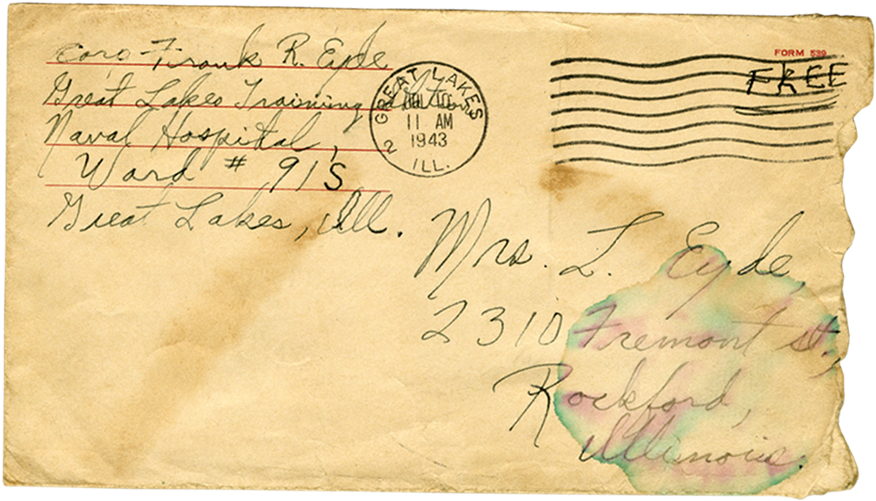 Corp Frank R. Eyde
Great Lakes Training
Naval Hospital,
Ward # 91S
Great Lakes, Ill.
GREAT LAKES
11 AM
1943
2 ILL.
FORM 539
FREE
Mrs. L. Eyde,
2310 Fremont st.,
Rockford,
Illinois.